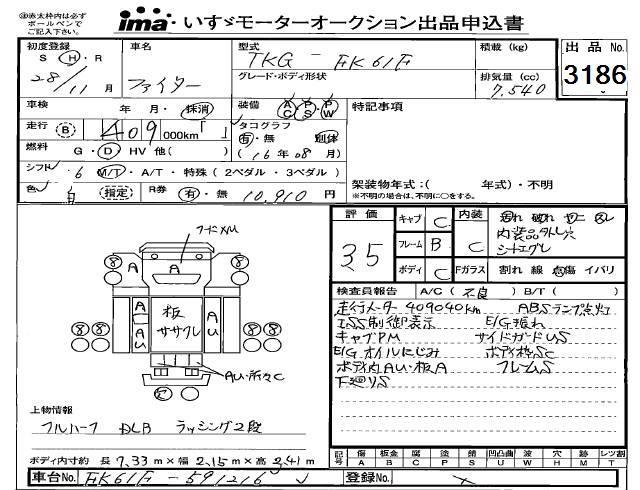 ※赤太枠内は必ず
ボールペンで
ご記入下さい。
ima・いすゞモーターオークション出品申込書
初度登録
S H・R
28/11月
車名
ファイター
型式
TKG-FK61F
グレード・ボディ形状
積載(kg)
排気量(cc)
7,540
出品No.
3186
車検 年・月・抹消
装備 AC PS PW
特記事項
走行 B 409 000km「 」
タコグラフ
有・無 別体
(16年08月)
燃料 G・D・HV 他( )
シフト 6 M/T・A/T・特殊(2ペダル・3ペダル)
色 白 指定 R券 有・無 10,910円
架装物年式:( 年式)・不明
※不明の場合は、不明に○をする。
フードメM
A
A
AU
板
ササクレ
AU
AU・所々C
上物情報
フルハーフ DLB ラッシング2段
ボディ内寸約 長 7.33m×幅 2.15m×高 2.41m
評価
3.5
キャブ C
フレーム B
ボディ C
内装 C
内装品外し穴
シートエグレ
Fガラス 割れ 線 点傷 イバリ
検査員報告 A/C(不良) B/T( )
走行メーター 409040km ABSランプ点灯
ISS制御表示 E/G振れ
キャブPM サイドガードUS
E/GオイルにじみボディS枠SC
ボディ内AU・板A フレームS
下廻りS
記号 傷 板金 腐 塗 錆 凹凸曲 波 穴 跡 レツ割
A B C P S U W H M T
車台No. FK61F-591216
登録No.